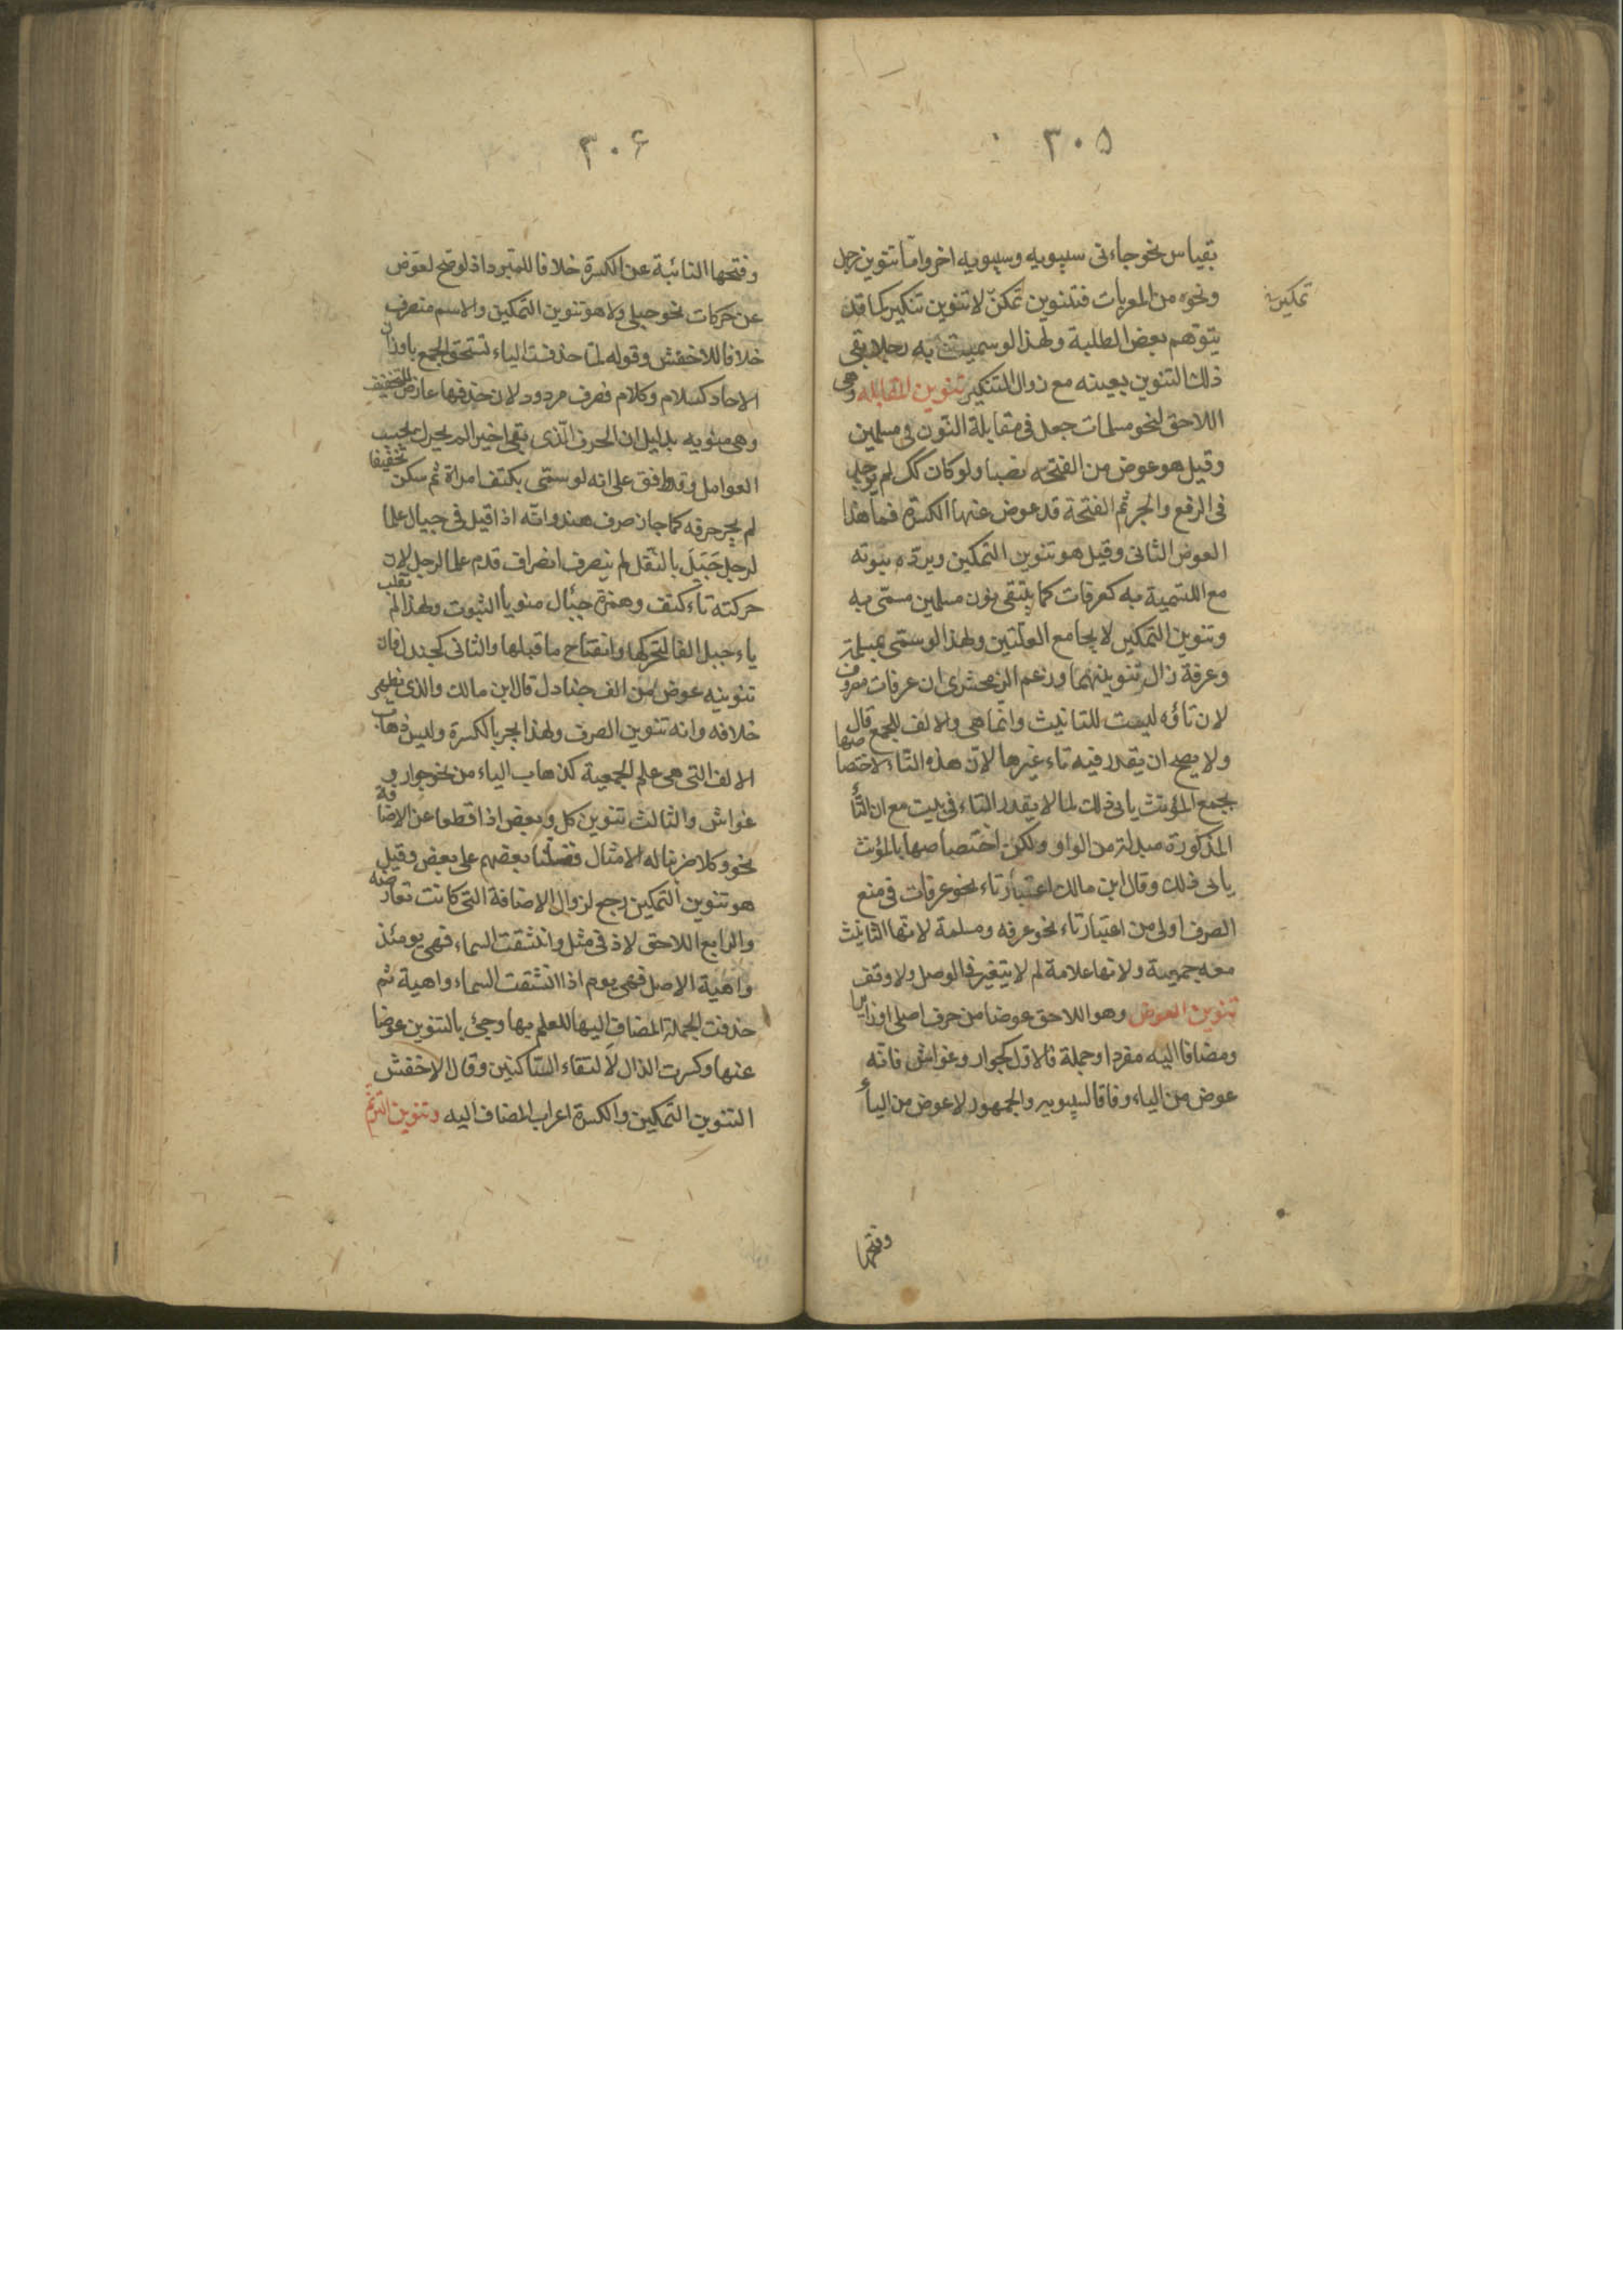 ٣٠۵
بقياس نحو جاءنى سيبويه وسيبويه اخر وامّا تنوين رجل
ونحوه من المعربات فتنوين تمكنّ لا تنوين تنكير كما قد
تمكين
يتوهم بعض الطلبة ولهذا لو سميت به رجلا بقى
ذلك التنوين بعينه مع زوال التنكير تنوين المقابله وهى
اللاحق لنحو مسلمات جعل فى مقابلة النّون فى مسلمين
وقيل هو عوض من الفتحه نصبا ولو كان كك لم يوجد
فى الرفع والجر ثم الفتحة قد عوض عنها الكسرة فما هذا
العوض الثانى وقيل هو تنوين التمكين ويردّه ثبوته
مع التسمية به كعرفات كما يتبقى نون مسلمين مسمّى به
وتنوين التمكين لا يجامع العلّتين ولهذا لو سمّى بمسلمة
وعرفة زال تنوينهما وزعم الزمحشرى ان عرفات مصروف
لان تاؤه ليست للتانيث وانما هى والالف للجمع قال
ولا يصح ان يقدر فيه تاء غيرها لانّ هذه التّاء لاختصاصها
بجمع المؤنث يابى ذلك لما لا يقدر التاء فى بيت مع ان التّأ
المذكورة مبدلة من الواو ولكن اختصاصها بالمؤنث
يابى ذلك وقال ابن مالك اعتبار تاء نحو عرفات فى منع
الصرف اولى من اعتبار تاء نحو عرفه ومسلمة لانها التانيث
معه جمعية ولانها علامة لم لا يتغير فى الوصل ولا وقف
تنوين العوض وهو اللاحق عوضا من حرف اصلى او زايد
ومضافا اليه مفردا وجملة فالاوّل كجوار وغواش فانّه
عوض من الياء وفاقا لسيبويه والجمهور لا عوض من اليأ
وفتحها
٣٠۶
وفتحها النائبة عن الكسرة خلافا للمبرد اذ لو صح لعوّض
عن حركات نحو حبلى ولا هو تنوين التمكين والاسم منصرف
خلافا للاخفش وقوله لمّا حذفت الياء تستحق الجمع باوزان
الاحاد كسلام وكلام فصرف مردود لان حذفها عارض للتخفيف
وهى منويه بدليل ان الحرف الّذى بقى اخيرا لم يحرك بحسب
العوامل وقد وافق على انه لو سمّى بكتف امراة ثم سكن تخفيفا
لم يجز صرفه كما جاز صرف هند وانّه اذا قيل فى جيال علما
لرجل جَيَل بالنّقل لم ينصرف انصراف قدم علما لرجل لان
حركته تاء كتف وهمزة جيأل منويا الثبوت ولهذا لم تقلب
ياء جيل الفا لتحركها وانفتاح ما قبلها والثانى كجندل فان
تنوينه عوض من الف جنادل قال ابن مالك والذى يظهر
خلافه وانه تنوين الصرف ولهذا يجر بالكسرة وليس ذهاب
الالف التى هى علم الجمعية كذهاب الياء من نحو جوار و
غواش والثالث تنوين كل وبعض اذا قطعا عن الاضافة
نحو وكلا ضربنا له الامثال فضلنا بعضهم على بعض وقيل
هو تنوين التمكين رجع لزوال الاضافة التى كانت تعارضه
والرابع اللاحق لاذ فى مثل وانشقت السماء فهى يومئذ
واهية الاصل فهى يوم اذا انشقت السماء واهية ثم
حذفت الجملة المضاف اليها للعلم بها وجئ بالتنوين عوضا
عنها وكسرت الذال لالتقاء السّاكنين وقال الاخفش
التنوين التّمكين والكسرة اعراب المضاف اليه وتنوين الترنّم